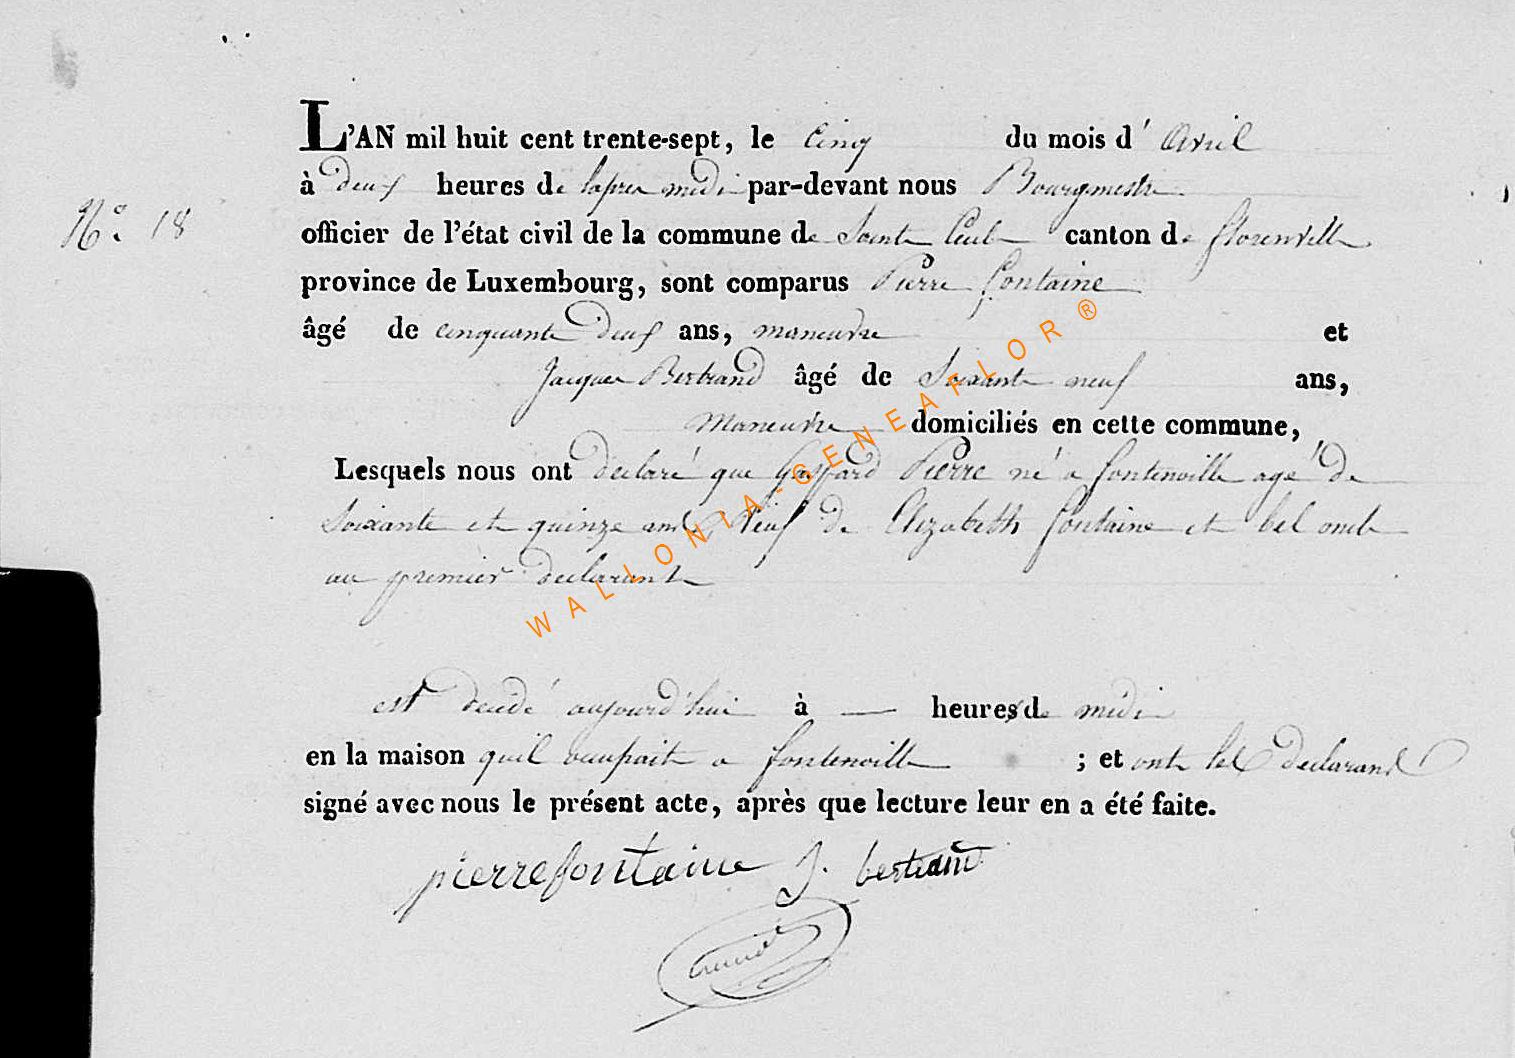 L'AN mil huit cent trente-sept, le Cinq du mois d' avril
à deux heures de lapres midi par-devant nous Bourgmestre
N.° 18
officier de l'état civil de la commune de Sainte Cecile canton de florenville
province de Luxembourg, sont comparus Pierre fontaine
âgé de cinquante deux ans, maneuvre et
Jacques Bertrand âgé de Soixante neuf ans,
Maneuvre domiciliés en cette commune,
Lesquels nous ont declaré que Gaspard Pierre né a fontenoille agé de
Soixante et quinze ans Veuf de Elizabeth fontaine et bel oncle
au premier declarant
est decidé aujourd'hui à heures de midi
en la maison quil occupait a fontenoille ; et ont les declarans
signé avec nous le présent acte, après que lecture leur en a été faite.
pierre fontaine J. bertrand
WALLONIA-GENEAFLOR ®